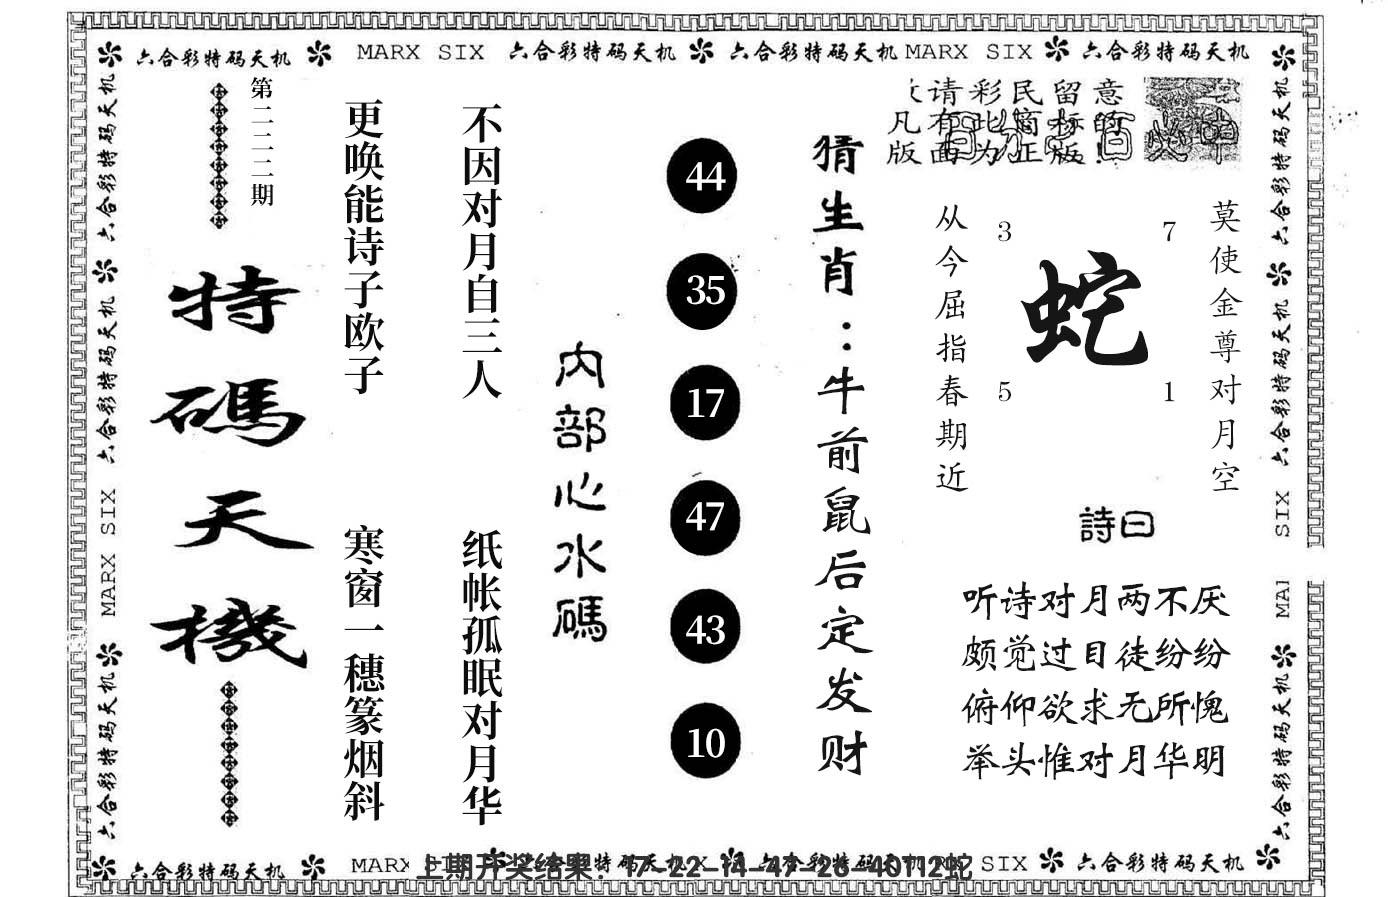 六合彩特码天机 MARX SIX 六合彩特码天机 六合彩特码天机 MARX SIX 六合彩特码天机
六合彩特码天机 六合彩特码天机 MARX SIX 六合彩特码天机
第二二二二期
特碼天機
更唤能诗子欧子
寒窗一穗篆烟斜
不因对月自三人
纸帐孤眠对月华
内部心水碼
44
35
17
47
43
10
猜生肖：牛前鼠后定发财
请彩民留意
凡有此窗标的
版面为正版！
从今屈指春期近
3
7
蛇
5
1
莫使金尊对月空
詩曰
听诗对月两不厌
颇觉过目徒纷纷
俯仰欲求无所愧
举头惟对月华明
六合彩特码天机 六合彩特码天机 SIX 六合彩特码天机
六合彩特码天机 MARX 六合彩特码天机 SIX 六合彩特码天机
上期开奖结果：17-22-14-47-26-40T12蛇